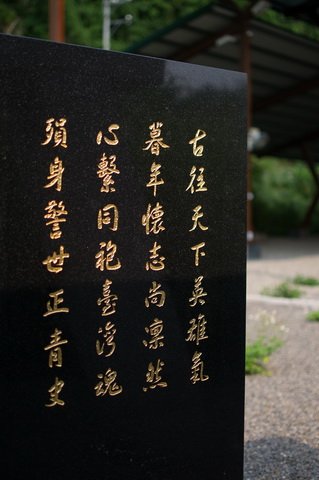 古往天下英雄氣
暮年懷志尚凛然
心繫同袍臺灣魂
殞身警世正青史